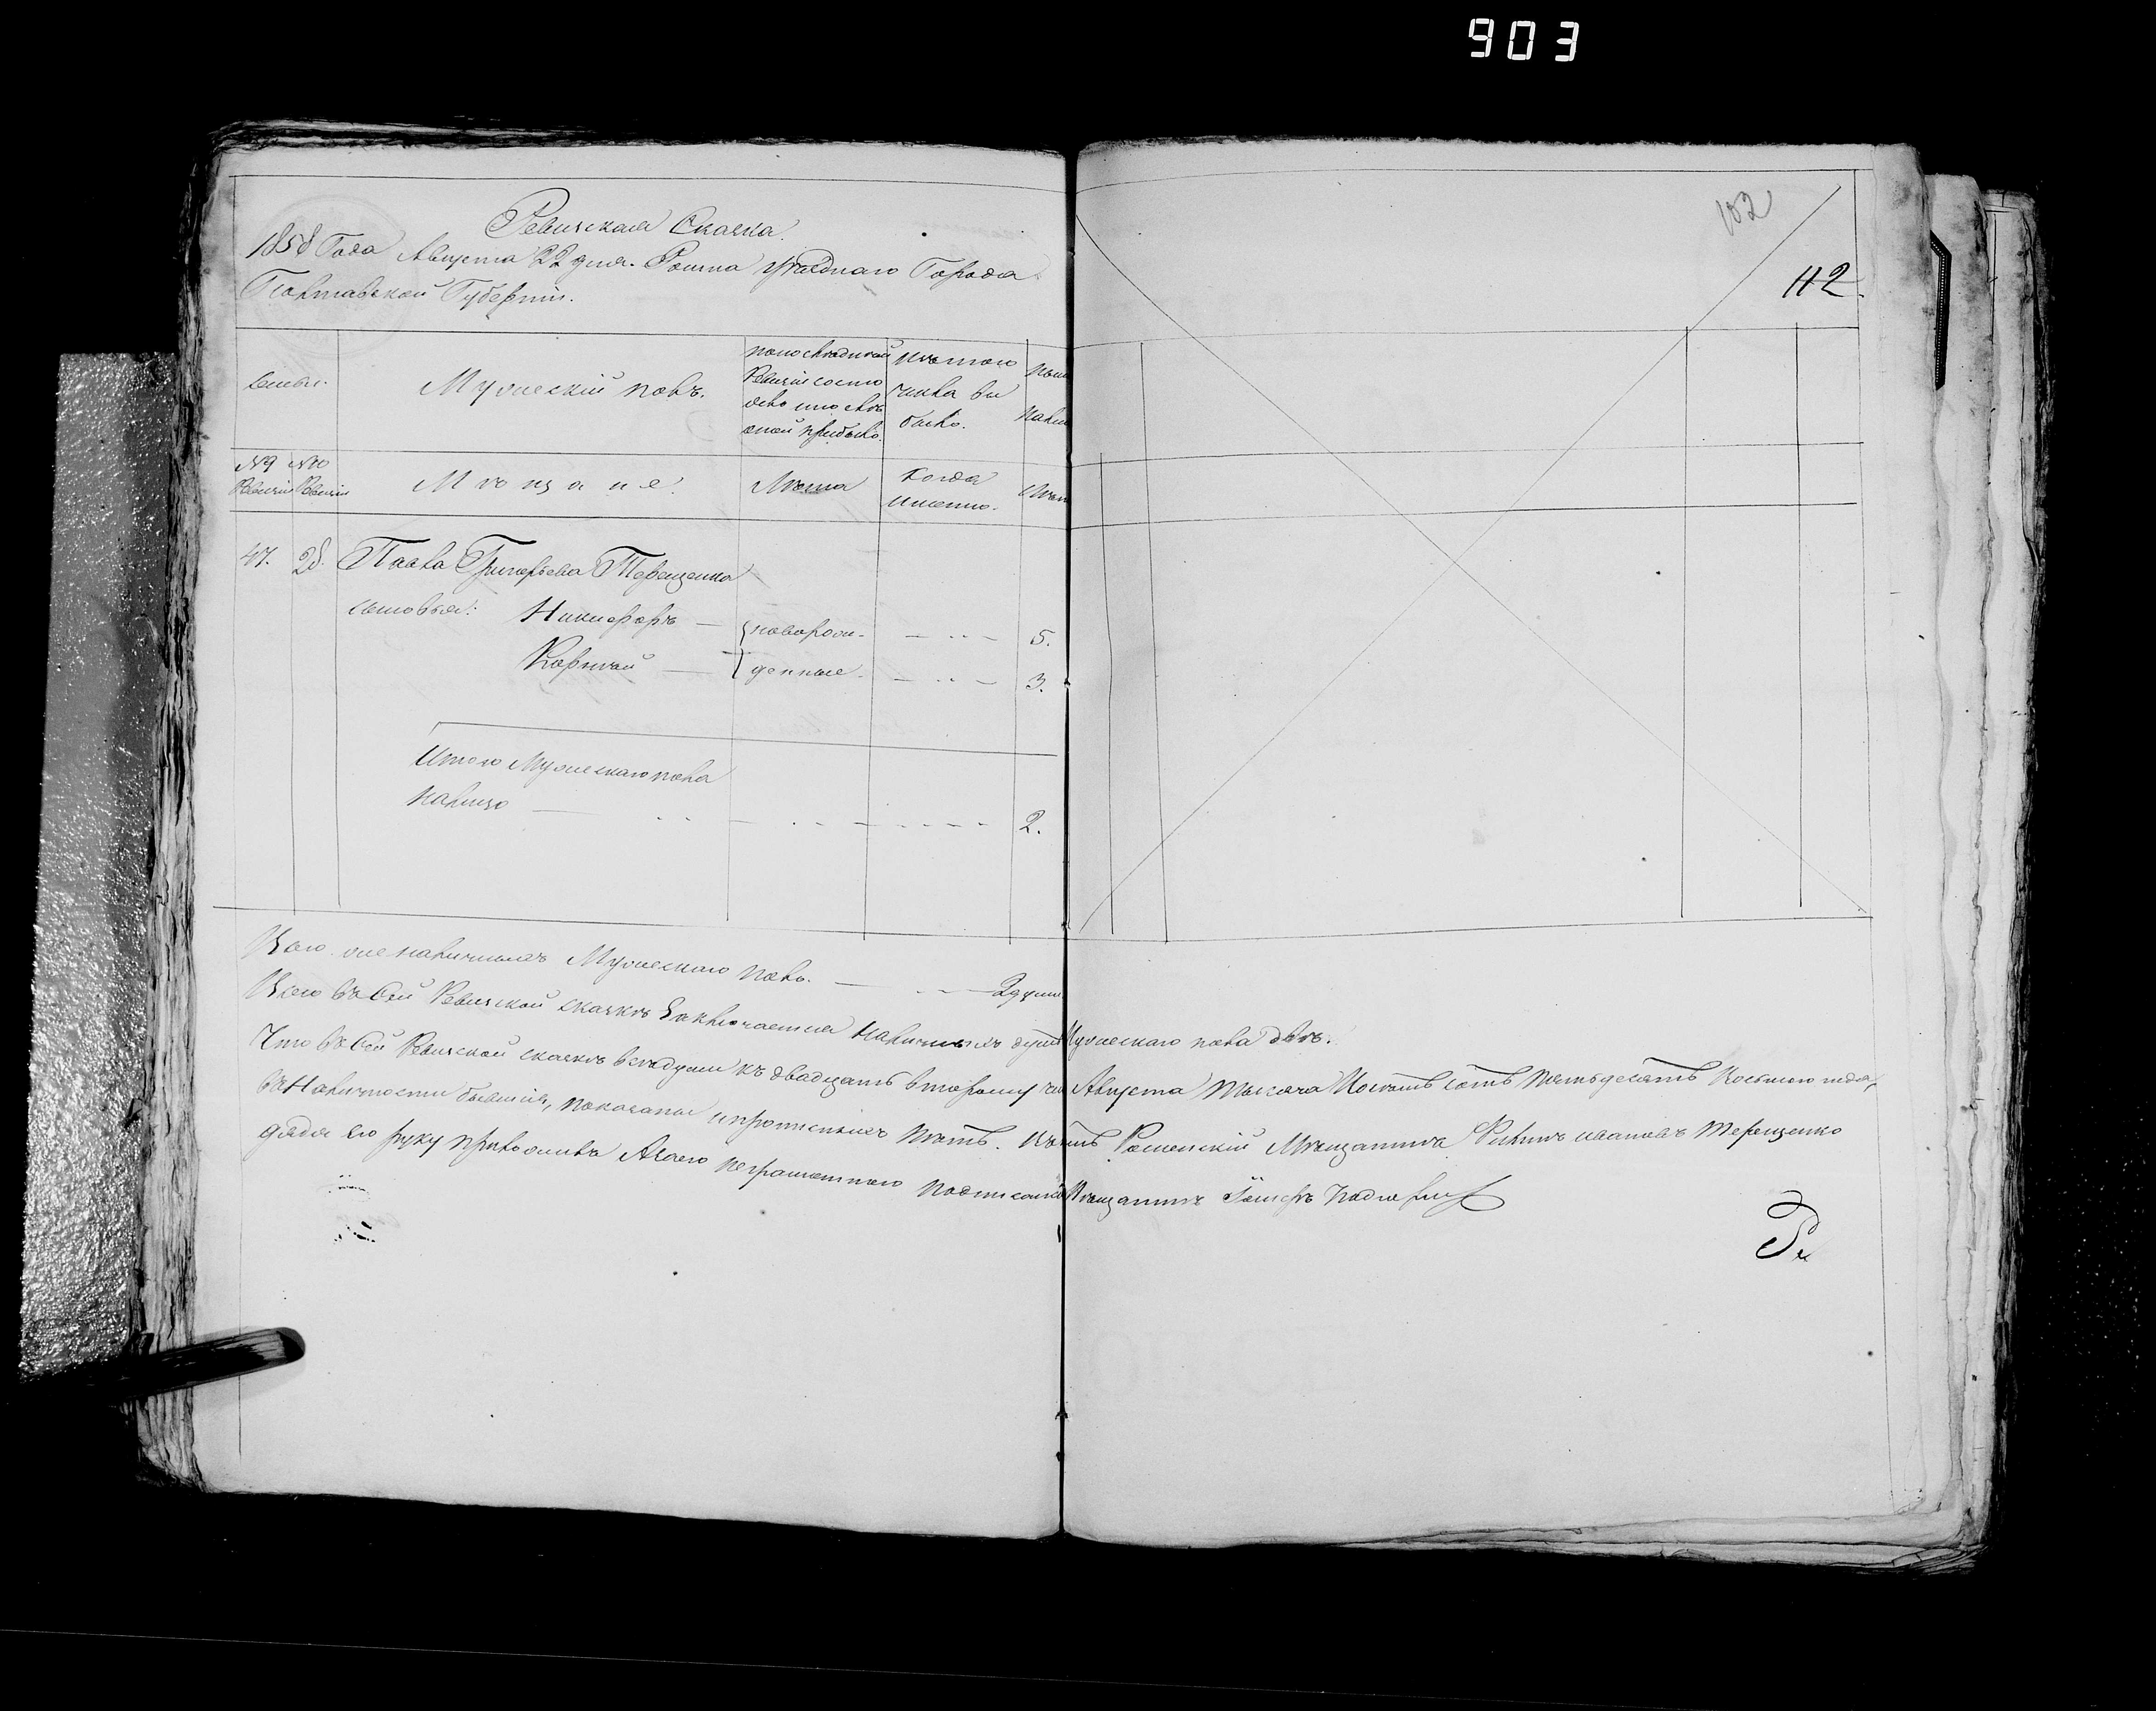 903
102
112.
Ревизская Сказка.
1858 Года Августа 22 дня. Ромна уѣзднаго Города
Полтавской Губерніи.
Семьи.
Мужескій полъ.
По последней
Ревизіи состо
яло или после
оной прибыло.
Изъ того
числа вы
было.
Ныне
Налицо
№9 Ревизіи
№10 Ревизіи
Мѣщане.
Лѣта
Когда
именно.
Лѣта
47. 28. Павла Григорьева Терещенка
сыновья: Никифоръ — новорож- 5.
Корнѣй — денные. 3.
Итого Мужескаго пола
налицо — 2.
Всего же наличныхъ Мужескаго пола. — 2 души.
Всего въ Сей Ревизской сказкѣ Заключается наличныхъ душъ Мужескаго пола двѣ.
Что въ Сей Ревизской сказкѣ все души къ двадцать второму Августа тысяча восемь сотъ пятьдесятъ восьмого года,
въ Наличности бывшія, показаны и прописныхъ нѣтъ. Въ томъ Роменскій Мѣщанинъ Филипъ Ивановъ Терещенко
дядя его руку приложилъ А за его неграмотнаго подписался Мѣщанинъ